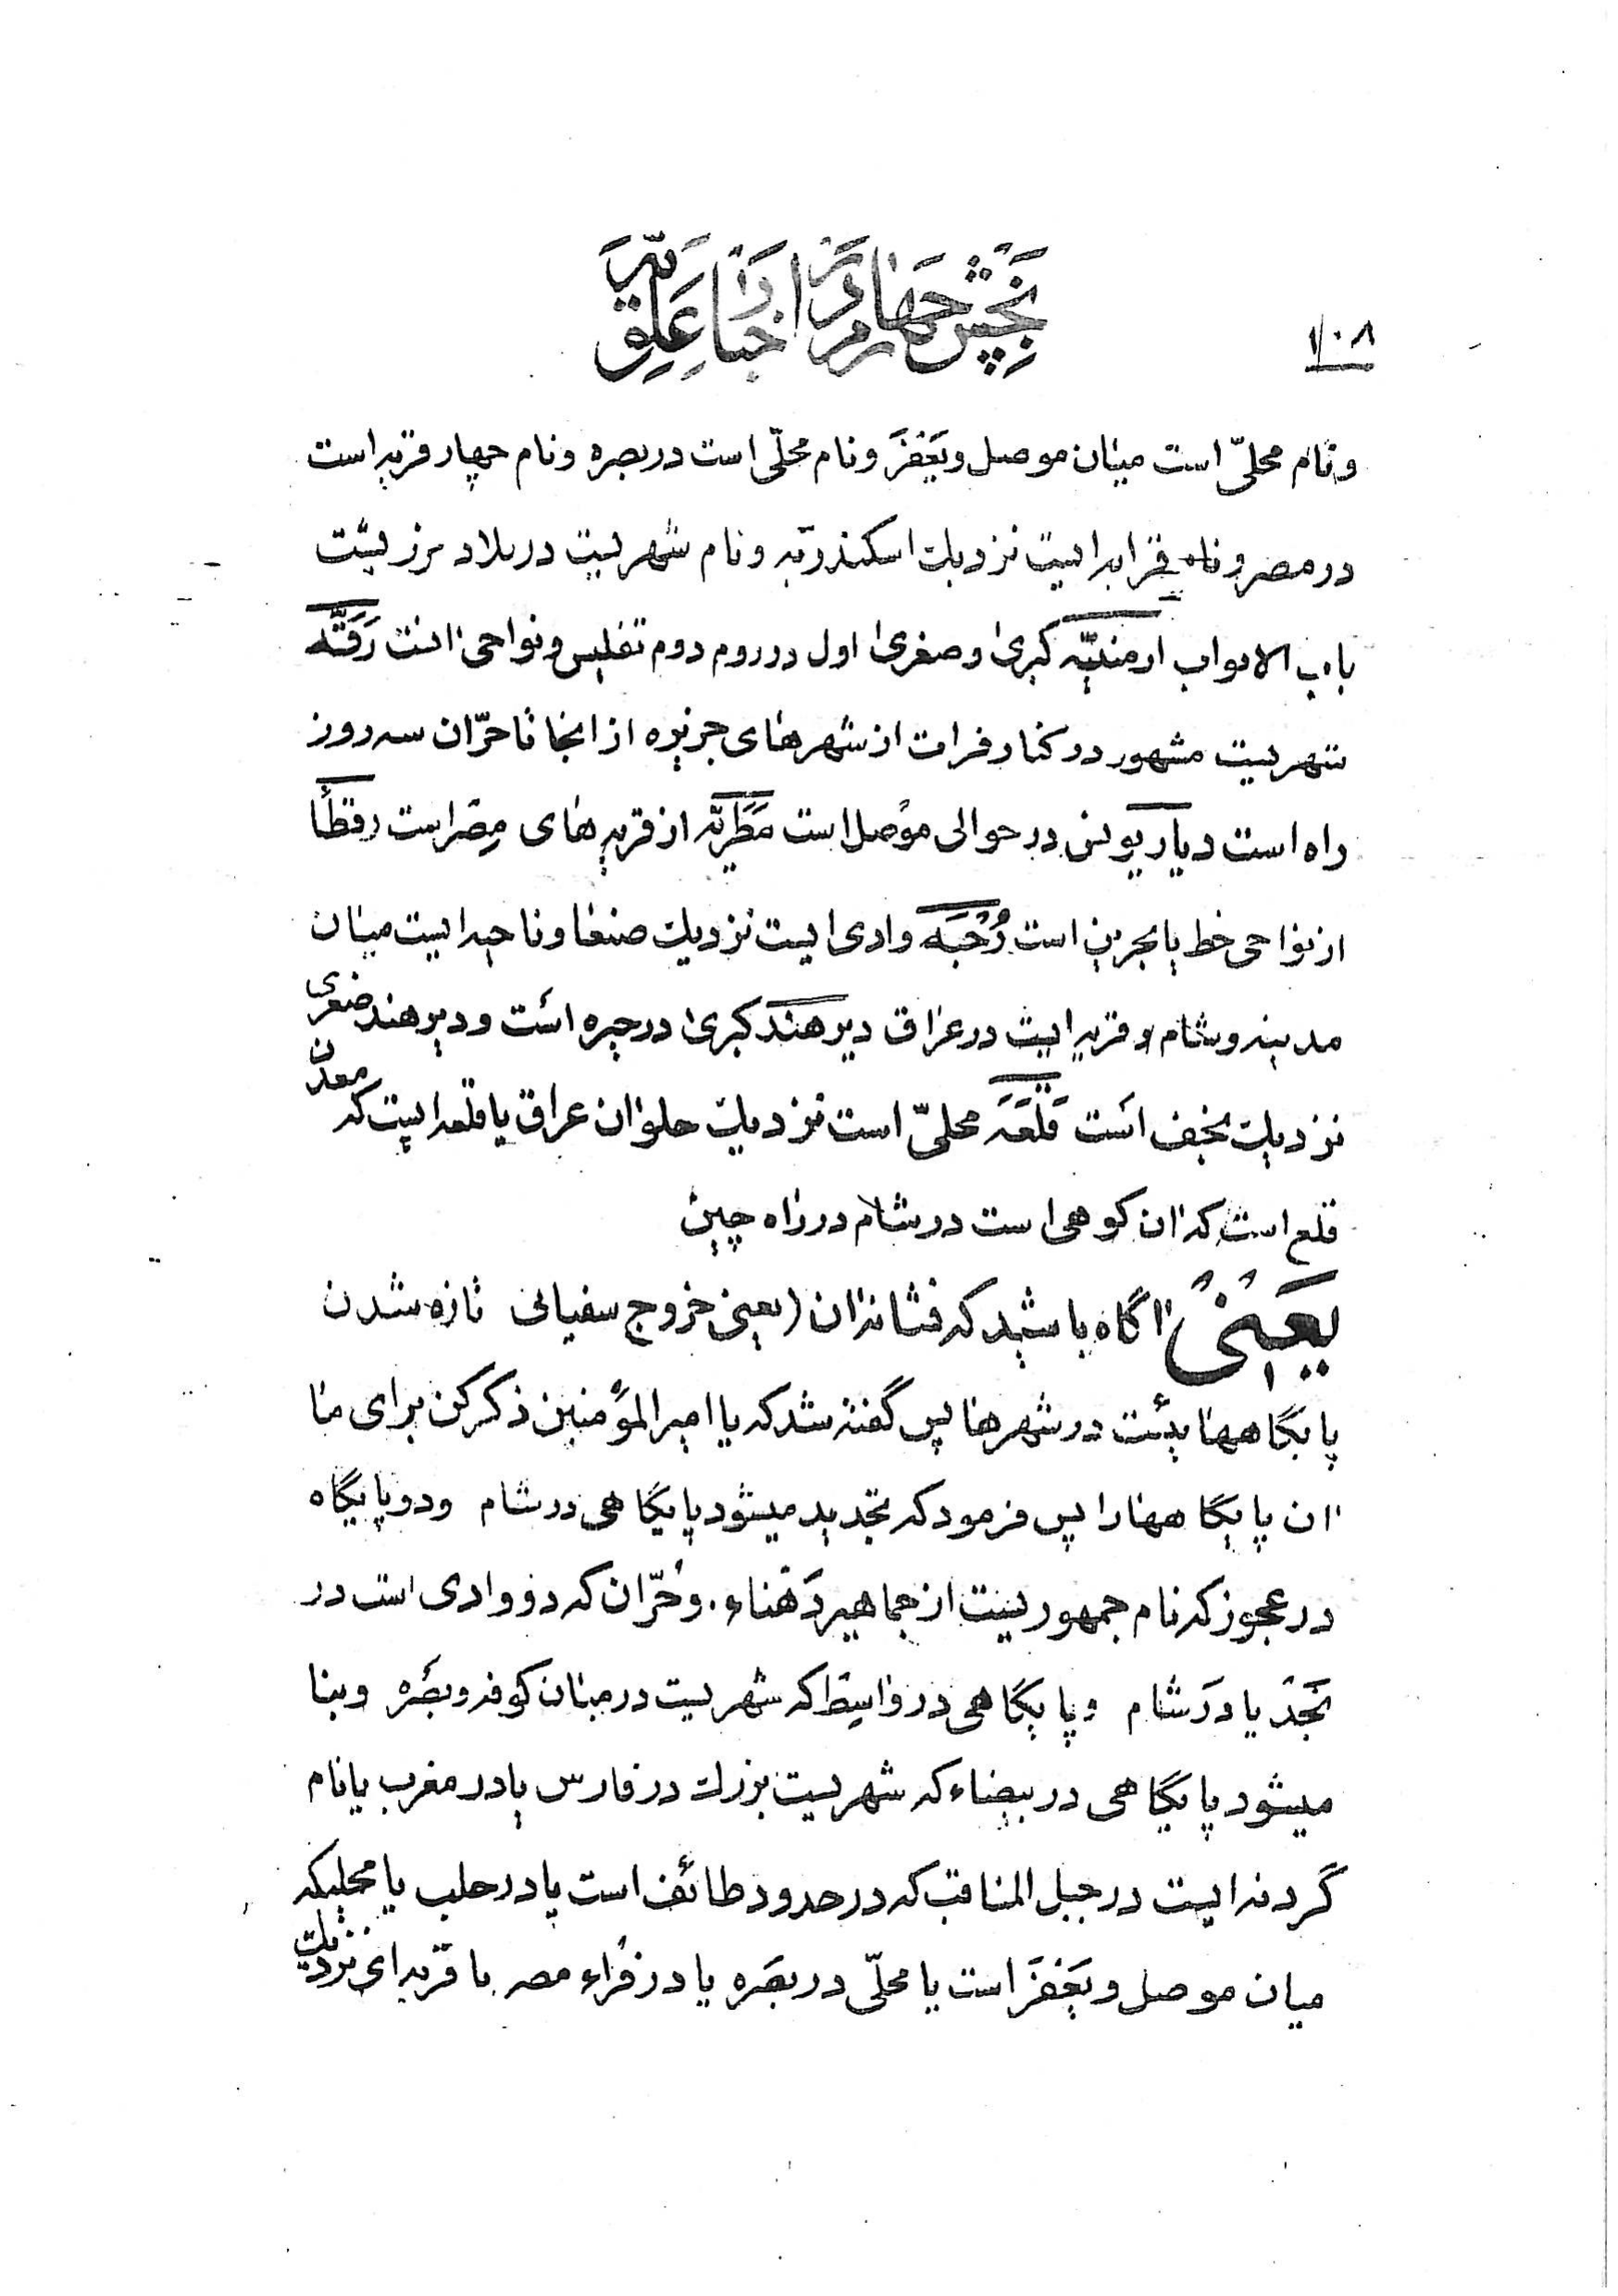 بخش چهارم در اخبار علویّه
۱۰۸
و نام محلّی است میان موصل و یَعْفَرَ و نام محلّی است در بصره و نام چهار قریه است
در مصر و نام قرایه ایست نزدیك اسکندریّه و نام شهریست در بلاد برز پشت
باب الابواب ارمنیّه کبری و صغری اول در روم دوم تفلیس و نواحی انست رَقَّه
شهریست مشهور در کنار فرات از شهرهای جزیره از انجا تا حرّان سه روز
راه است دیار یونس در حوالی موصل است مَطَریّه از قریه های مِصْر است
از نواحی خط یا بحرین است رُحْبَه وادی ایست نزدیك صنعا و ناحیه ایست میان
مدینه و شام و قریه ایست در عراق دیر هند کبری در حیره است و دیر هند صغری
نزدیك نجف است قَلْعَه محلّی است نزدیك حلوان عراق یا قلعه ایست که معدن
قلع است که ان کوهی است در شام در راه چین
یَعْنی اگاه باشید که نشانه ان (یعنی خروج سفیانی تازه شدن
پایگاههائیست در شهرها پس گفته شد که یا امیر المؤمنین ذکر کن برای ما
ان پایگاهها را پس فرمود که تجدید میشود پایگاهی در شام و دو پایگاه
در عجوز که نام جمهوریست از جماهیر دَهْناء. و حُرّان که دو وادی است در
نَجْد یا در شام و پایگاهی در واسط که شهریست در میان کوفه و بصره و بنا
میشود پایگاهی در بیضاء که شهریست بزرك در فارس یا در مغرب یا نام
گردنه ایست در جبل المناقب که در حدود طائف است یا در حلب یا محلیکه
میان موصل و یَعْفَرَ است یا محلّی در بصره یا در قراء مصر یا قریه ای نزدیك